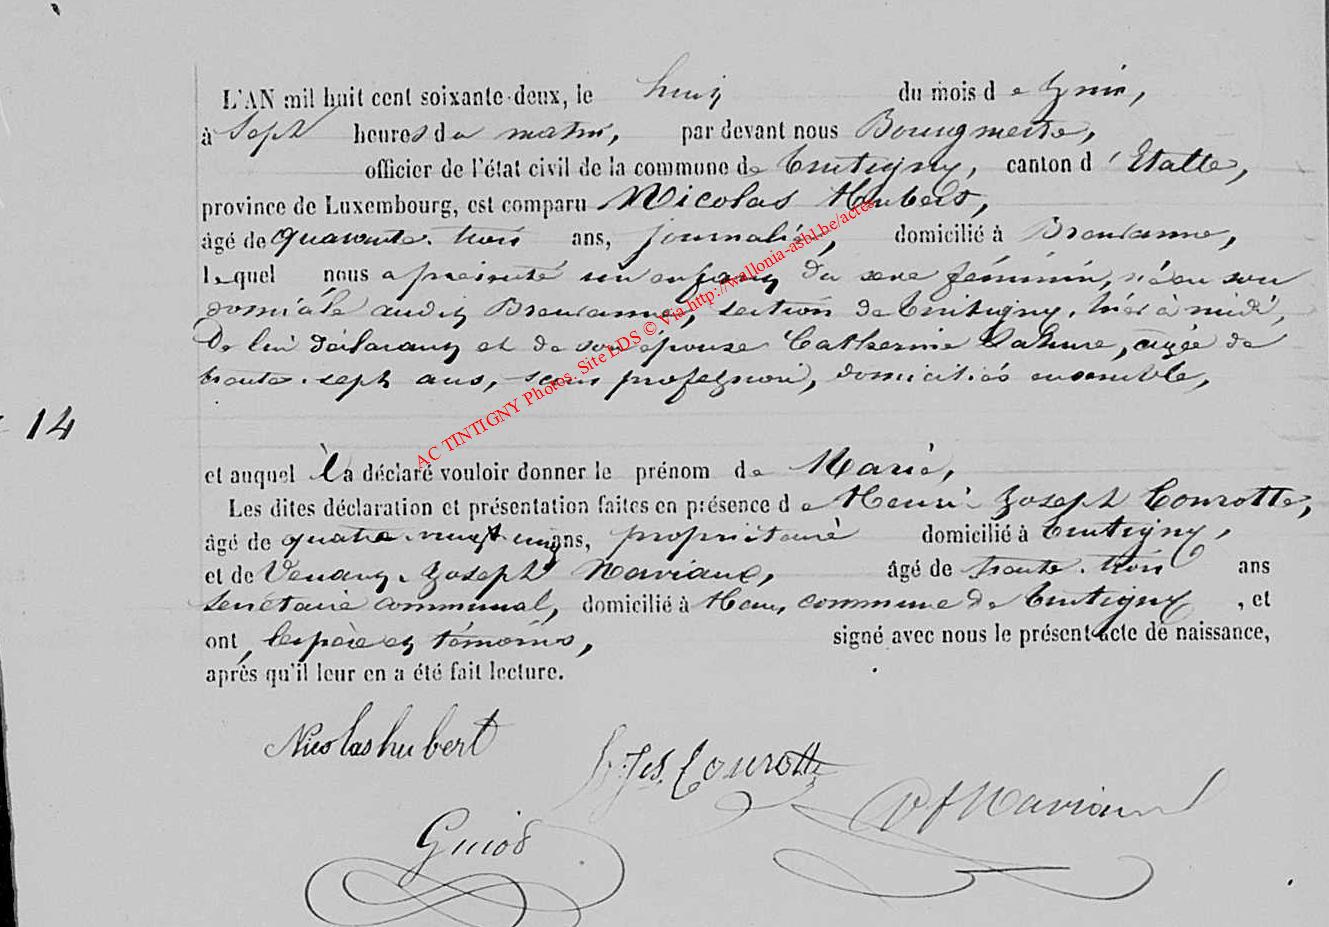 L'AN mil huit cent soixante-deux, le huit du mois de Juin,
à Sept heures du matin, par devant nous Bourgmestre,
officier de l'état civil de la commune de Tintigny, canton d'Etalle,
province de Luxembourg, est comparu Nicolas Hubert,
âgé de quarante-trois ans, journalier, domicilié à Breuvanne,
lequel nous a présenté un enfant du sexe féminin, né en son
domicile audit Breuvanne, section de Tintigny, hier à midi,
De lui déclarant et de son épouse Catherine Lahure, agée de
trente-sept ans, sans profession, domiciliés ensemble,
14
et auquel il a déclaré vouloir donner le prénom de Marie,
Les dites déclaration et présentation faites en présence de Henri Joseph Courotte,
âgé de quatre-vingt ans, propriétaire domicilié à Tintigny,
et de Venant-Joseph Naviaux, âgé de trente-trois ans
secrétaire communal, domicilié à Han, commune de Tintigny, et
ont, les père et témoins, signé avec nous le présent acte de naissance,
après qu'il leur en a été fait lecture.
Nicolas hubert
h. Jos. Courotte
VJ Naviaux
Guiot
AC TINTIGNY Photos. Site LDS © Via http://wallonia-asbl.be/actes